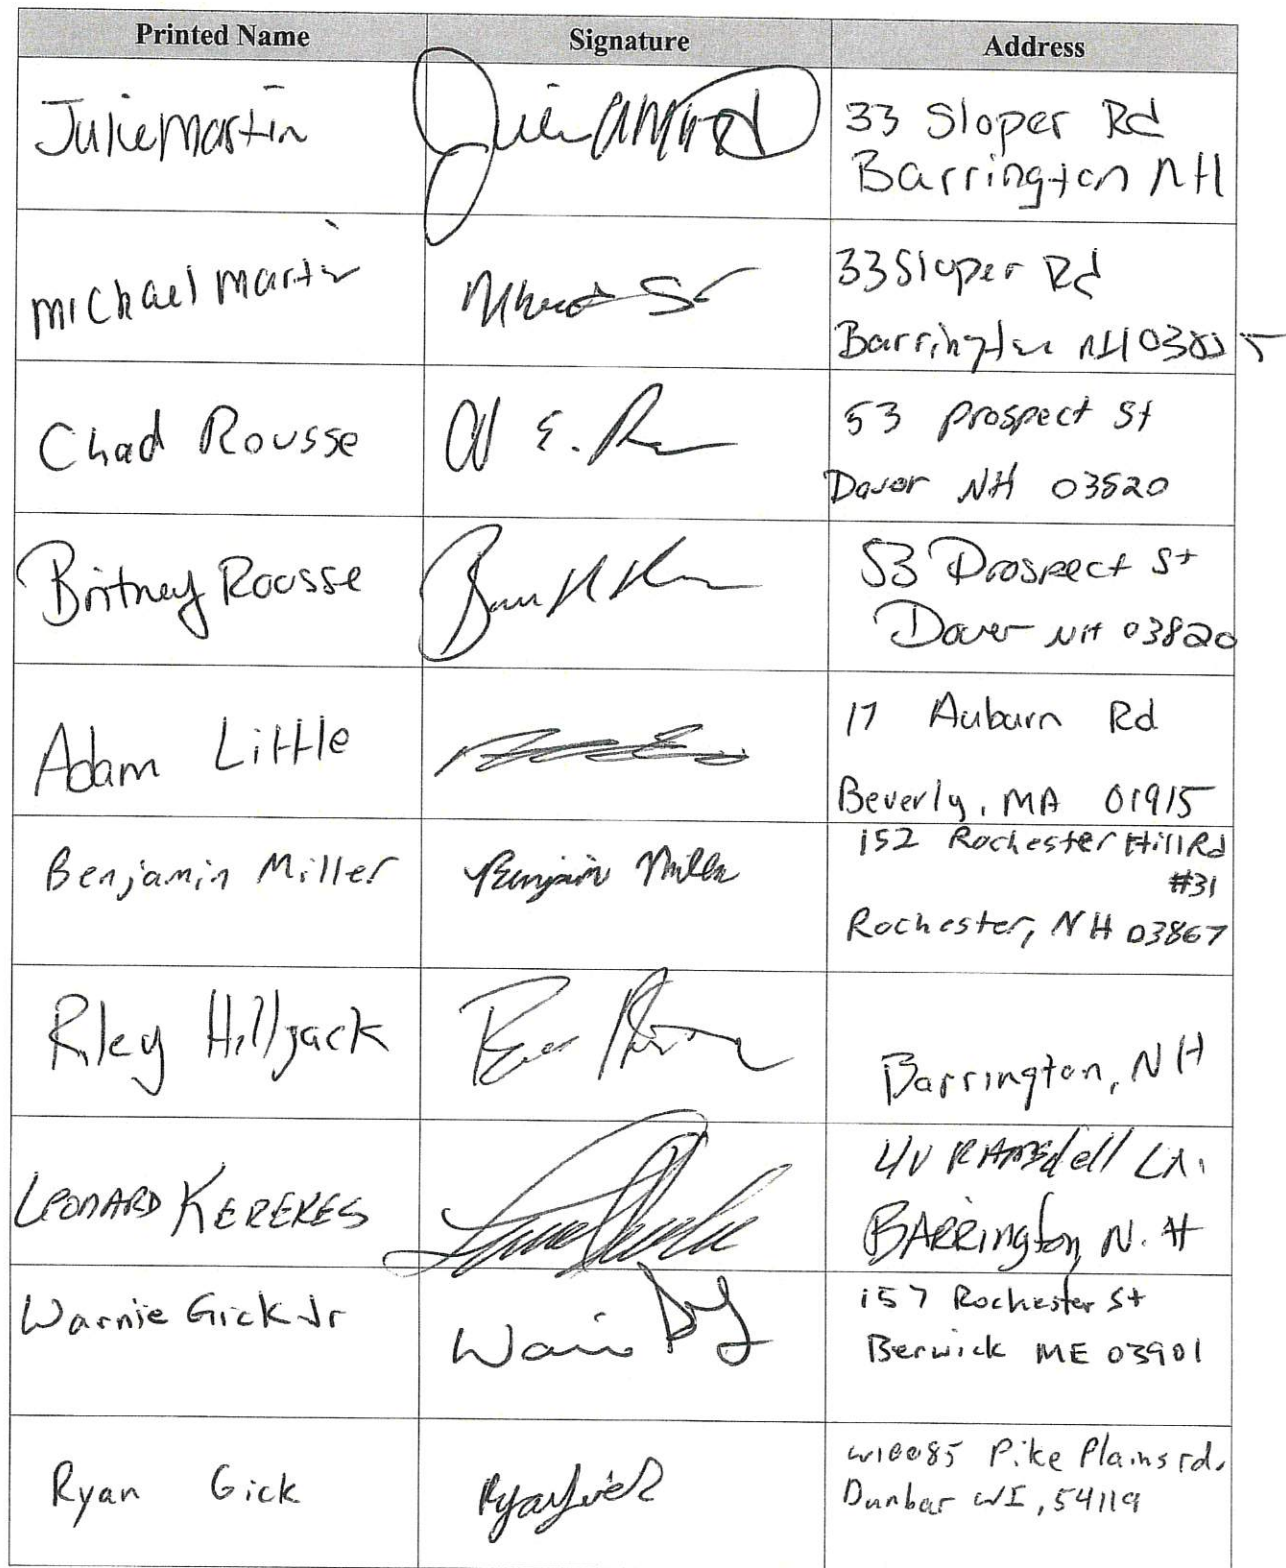 Printed Name Signature Address
Julie Martin
33 Sloper Rd
Barrington NH
Michael Martin
33 Sloper Rd
Barrington NH 03825
Chad Rousse
53 Prospect St
Dover NH 03820
Britney Rousse
53 Prospect St
Dover NH 03820
Adam Little
17 Auburn Rd
Beverly, MA 01915
Benjamin Miller Benjamin Miller
152 Rochester Hill Rd
#31
Rochester, NH 03867
Riley Hilljack
Barrington, NH
LEONARD KEREKES
RAMSdell LN.
BARRington, N.H
Warnie Gick Jr
157 Rochester St
Berwick ME 03901
Ryan Gick Ryan Gick
W10085 Pike Plains rd.
Dunbar WI, 54119